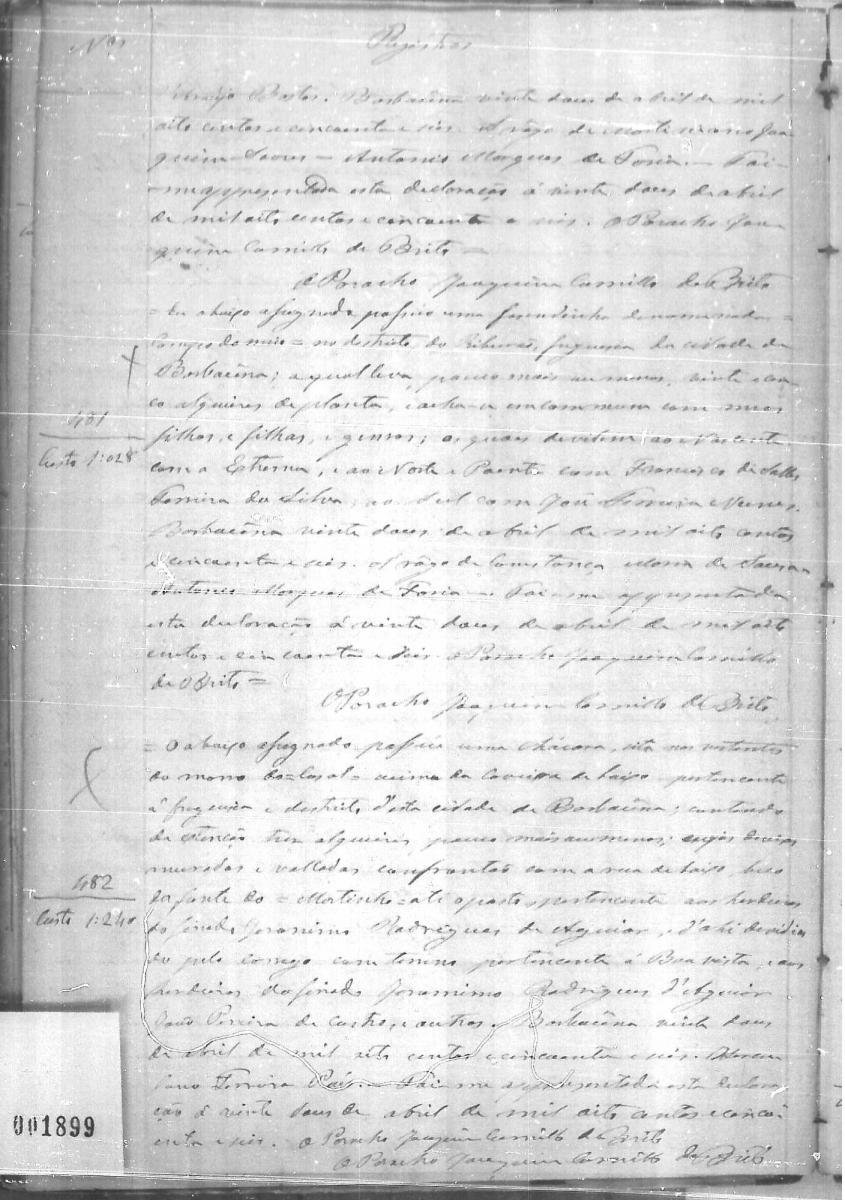 Nos
Registros
Araujo Bastos. Barbacena vinte dous de abril de mil
oito centos e cincoenta e seis. A rogo de Joa
quina Soares = Antonio Marques de Faria. = Foi
me appresentada esta declaração á vinte dous de abril
de mil oito centos e cincoenta e seis. O Parocho Joa
quim Camillo de Brito =
O Parocho Joaquim Camillo de Brito
= Eu abaixo assignada possuo uma fasendinha denominada =
Campo do meio = no destricto do Ribeirão, freguesia da cidade de
Barbacena; a qual leva pouco mais ou menos, vinte e cin
co alqueires de planta, e acha-se em commum com meos
filhos, e filhas, e genros; os quaes devidem ao Nascente
com a Extrema, e ao Norte e Poente com Francisco de Salles
Ferreira da Silva, ao Sul com José Ferreira Nunes.
Barbacena vinte dous de abril de mil oito centos
e cincoenta e seis. A rogo de Constança Maria de
Antonio Marques de Faria = Foi me appresentada
esta declaração á vinte dous de abril de mil oito
centos e cincoenta e seis. O Parocho Joaquim Camillo
de Brito =
O Parocho Joaquim Camillo de Brito
= O abaixo assignado possue uma chácara, sita nas vertentes
do morro acima da de baixo pertencente
á freguesia e destricto d'esta cidade de Barbacena; contendo
de extenção tres alqueires pouco mais ou menos; cujas devisas
muradas e valladas confrontão com a rua de baixo, beco
da fonte do = Martinho = até o pasto pertencente aos herdeiros
do finado Jeronimo Rodrigues de Aguiar, e d'ahi devidin
do pelo corrego com terreno pertencente á Boa vista, e aos
herdeiros do finado Jeronimo Rodrigues d'Aguiar
João Pereira de Castro, e outros. Barbacena vinte dous
de abril de mil oito centos e cincoenta e seis.
Ferreira = Foi me appresentada esta declara
ção á vinte dous de abril de mil oito centos e cinco
enta e seis. O Parocho Joaquim Camillo de Brito
O Parocho Joaquim Camillo de Brito
481
Custo 1:028
482
Custo 1:240
001899